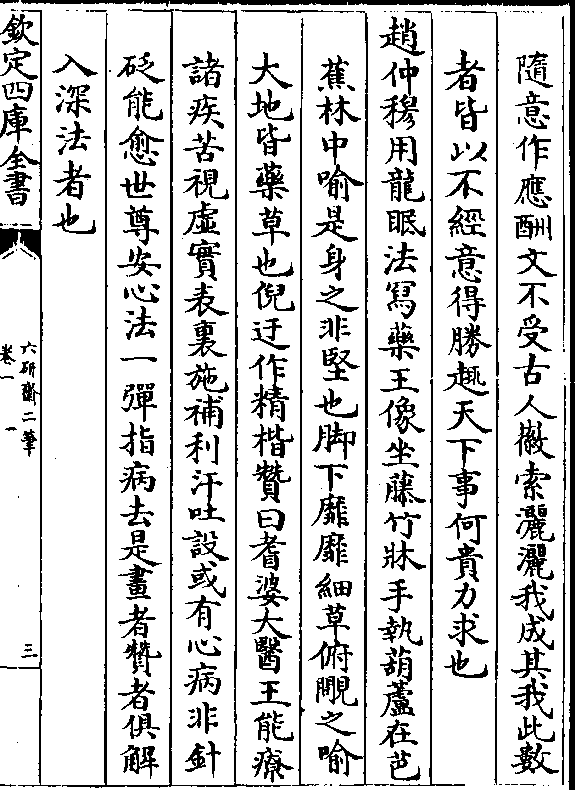 隨意作應酬文不受古人徽索灑灑我成其我此數
者皆以不經意得勝趣天下事何貴力求也
趙仲穆用龍眠法冩藥王像坐藤竹牀手執葫蘆在芭
蕉林中喻是身之非堅也脚下靡靡細草俯覵之喻
大地皆藥草也倪迂作精楷贊曰耆婆大醫王能療
諸疾苦視虛實表裏施補利汗吐設或有心病非針
砭能愈世尊安心法一彈指病去是畫者贊者俱解
入深法者也
欽定四庫全書
六研齋二筆
卷一
一
三